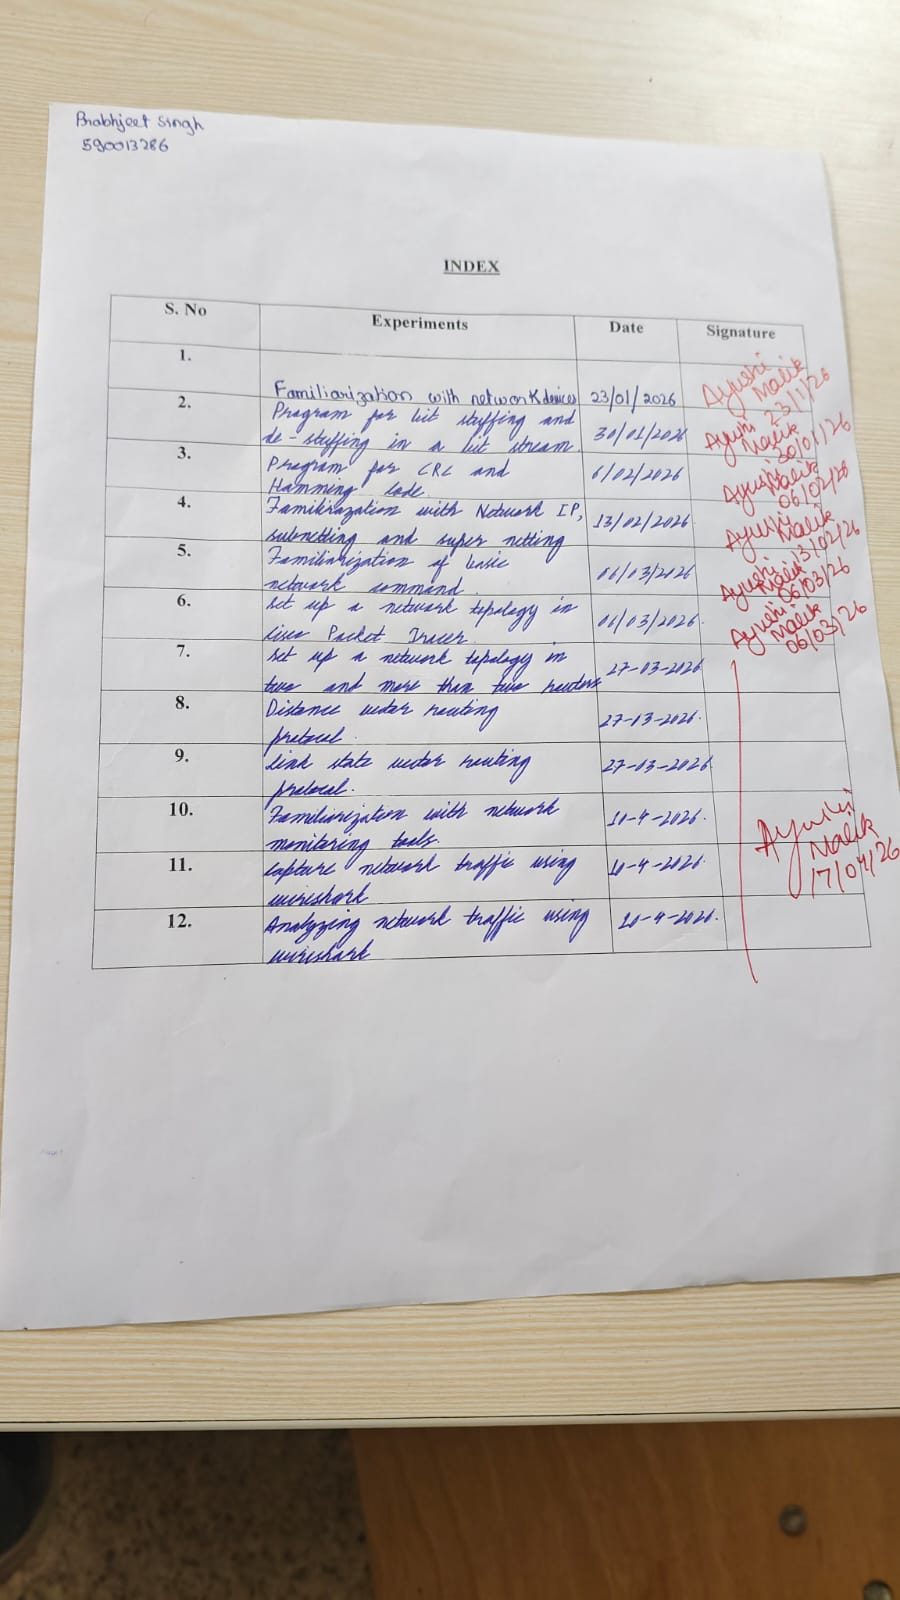 Prabhjeet Singh
590013286
INDEX
S. No Experiments Date Signature
1. Familiarization with network devices 23/01/2026 Ayushi Malik 23/1/26
2. Program for bit stuffing and
de-stuffing in a bit stream. 30/01/2026 Ayushi Malik 30/01/26
3. Program for CRC and
Hamming Code. 6/02/2026 Ayushi Malik 06/02/26
4. Familirazation with Network IP,
subnetting and super netting 13/02/2026 Ayushi Malik 13/02/26
5. Familiarization of basic
network command. 06/03/2026 Ayushi Malik 06/03/26
6. Set up a network topology in
Cisco Packet Tracer. 06/03/2026. Ayushi Malik 06/03/26
7. Set up a network topology in
two and more than two routers 27-03-2026
8. Distance vector routing
protocol. 27-03-2026.
9. Link state vector routing
protocol. 27-03-2026
10. Familiarization with network
monitoring tools. 10-4-2026.
11. Capture network traffic using
wireshark 10-4-2026.
12. Analyzing network traffic using
wireshark 10-4-2026.
Ayushi
Malik
17/04/26